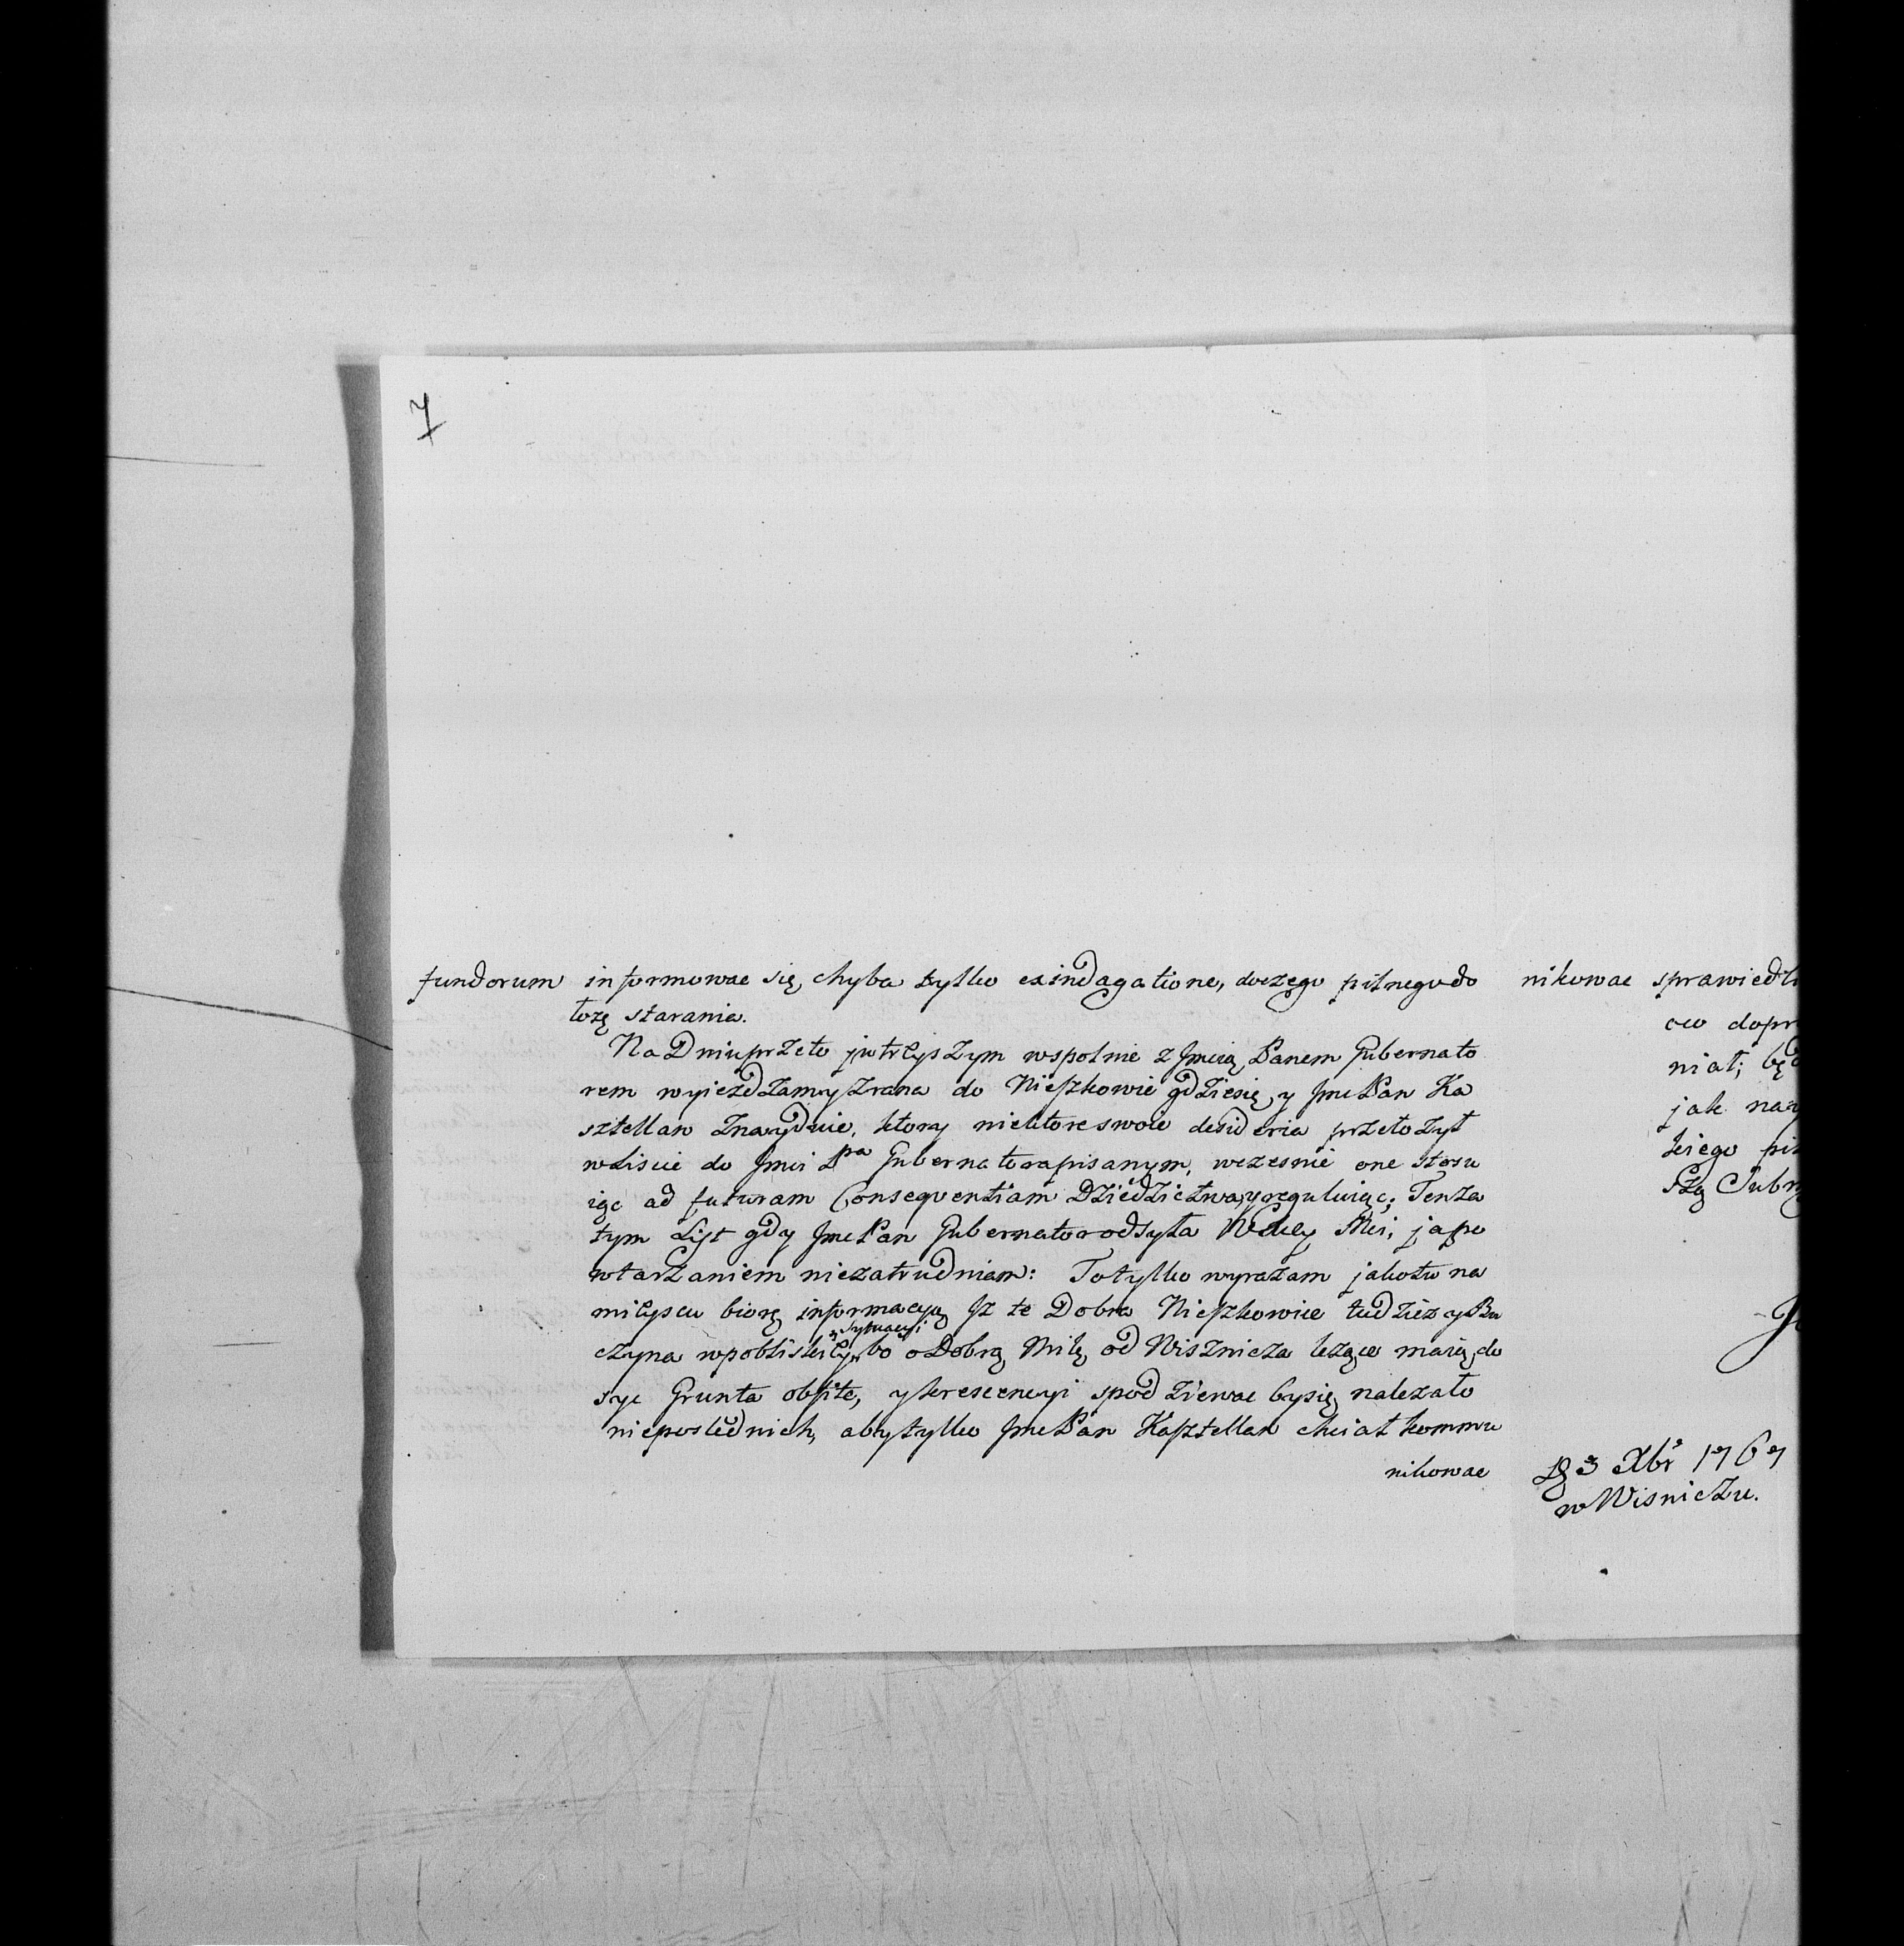 7
fundorum informowac się chyba tylko ex indagatione, do czego pilnego do
łozę starania.
Na Dniu przeto jutrzyszym wspolnie z Jmcią Panem Gubernato
rem wyiezdzamy zrana do Nieszkowic gdzie się y JmcPan Ka
sztellan znayduie, ktory niektore swoie desideria przełozył
w Liscie do Jmci Pna Gubernatora pisanym, wczesnie one stosu
iąc ad futuram Consequentiam Dziedzictwa, y reguluiąc; Ten za
tym List gdy JmcPan Gubernator odsyła WXcey Mci, ja po
wtarzaniem niezatrudniam: To tylko wyrazam jako tu na
mieyscu biorę informacyą Iz te Dobra Nieszkowice tudziez y Bu
czyna w pobliskiey sytuacyi bo o Dobrą Milę od Wisznicza lezące maią do
syc Grunta obfite, y krescencyi spodziewac by się nalezało
nieposlednich, aby tylko JmcPan Kasztellan chciał kommu
nikowac
nikowac sprawiedli
ow dopr
niał; będ
jak nay
kiego pi
Szą Subm
D 3 Xbr 1767
w Wisniczu.